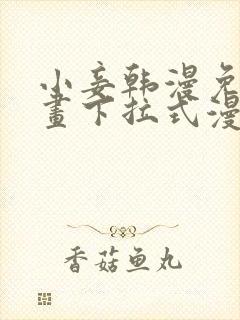 小妾韩漫免
畫下拉式漫
香菇鱼丸